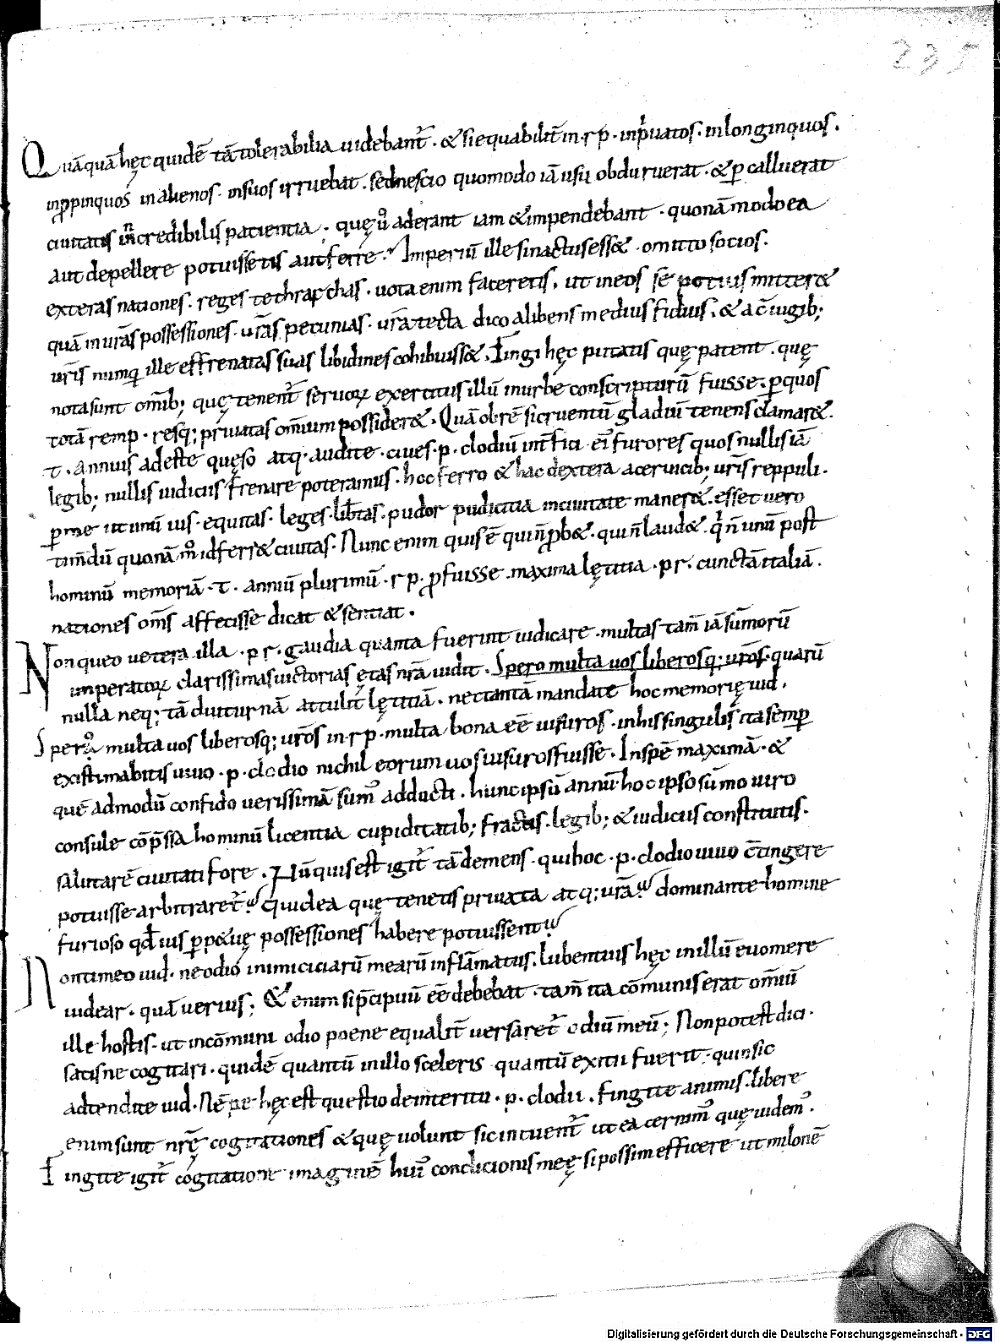 235
Quāquā hęc quidē tā tolerabilia uidebant̄. & si equabilit̄ in r p. in p̄uatos. in longinquos.
in ꝓpinquos in alienos. in suos irruebat. sed nescio quomodo iā usu obduruerat. & ꝑcalluerat
ciuitatis incredibilis patientia. quę u̾ aderant iam & impendebant. quonā modo ea
aut depellere potuissetis aut ferre. Imperiū ille si nactus ess&. omitto socios.
exteras nationes. reges tethrarchas. uota enim faceretis. ut in eos se potius mitter&
quā in urās possessiones. urās pecunias. urā tecta dico a liberis medius fidius. & a c̄iugib;
uris numq̄ ille effrenatas suas libidines cohibuiss&. Fingi hęc putatis quę patent. quę
nota sunt omīb; quę tenent̄ seruoꝝ exercitus illū in urbe conscripturū fuisse. ꝑ quos
totā remp. resq; priuatas omīum possider&. Quā ob rē si cruentū gladiū tenens clamar&.
t. annius adeste quęso atq. audite. ciues. p. clodiū int̄feci ei᷒ furores quos nullis iā
legib; nullis iudiciis frenare poteramus. hoc ferro & hac dextera a ceruicib; uris reppuli.
ꝑ me ut unū ius. equitas. leges. lib̄tas. pudor pudicitia in ciuitate maner&. esset uero
timdū quonā m̊ id ferr& ciuitas. Nunc enim quis ē qui n̄ ꝓb&. qui n̄ laud&. q̄ n̄ unū post
hominū memoriā. t. anniū plurimū. r p. ꝓfuisse. maxima lętitia. p r. cunctā italiā.
nationes om̄s affecisse dicat & sentiat.
Non queo uetera illa. p r. gaudia quanta fuerint iudicare. multas tam̄ iā sum̄orū
imperatoꝝ clarissimas uictorias ętas nr̄a uidit. Spero multa uos liberosq; uros. quarū
nulla neq; tā diuturnā attulit lętitiā. nec tantā mandate hoc memorię iud.
Spero multa uos liberosq; uros in r p. multa bona eē uisuros. in his singulis ita semꝑ
existimabitis uiuo. p. clodio nichil eorum uos uisuros fuisse. In spē maximā. &
quē admodū confido uerissimā sum᷒ adducti. hunc ipsū annū. hoc ipso sum̄o uiro
consule cōp̄ssa hominū licentia cupiditatib; fractis. legib; & iudiciis constitutis.
salutarē ciuitati fore. Nū quis est igit̄ tā demens. qui hoc. p. clodio uiuo c̄tingere
potuisse arbitraret̄. Quid ea quę tenetis priuata atq; urā. dominante homine
furioso qd̄ ius ꝑpetuę possessiones habere potuissent
Non timeo iud. ne odio inimiciciarū mearū inflāmatus. lubentius hęc in illū euomere
uidear. quā uerius; & enim si p̄cipuū eē debebat. tam̄ ita cōmunis erat omīū
ille hostis. ut in cōmuni odio poene equalit̄ uersaret̄ odiū meū; Non potest dici.
satis ne cogitari. quidē quantū in illo sceleris quantū exitii fuerit. quin sic
adtendite iud. Nēpe hęc est questio de interitu. p. clodii. fingite animis. libere
enim sunt nr̄ę cogitationes & quę uolunt sic intuent̄ ut ea cernim᷒ quę uidem᷒.
Fingite igit̄ cogitatione imaginē hui᷒ condicionis meę si possim efficere ut milonē
Digitalisierung gefördert durch die Deutsche Forschungsgemeinschaft - DFG